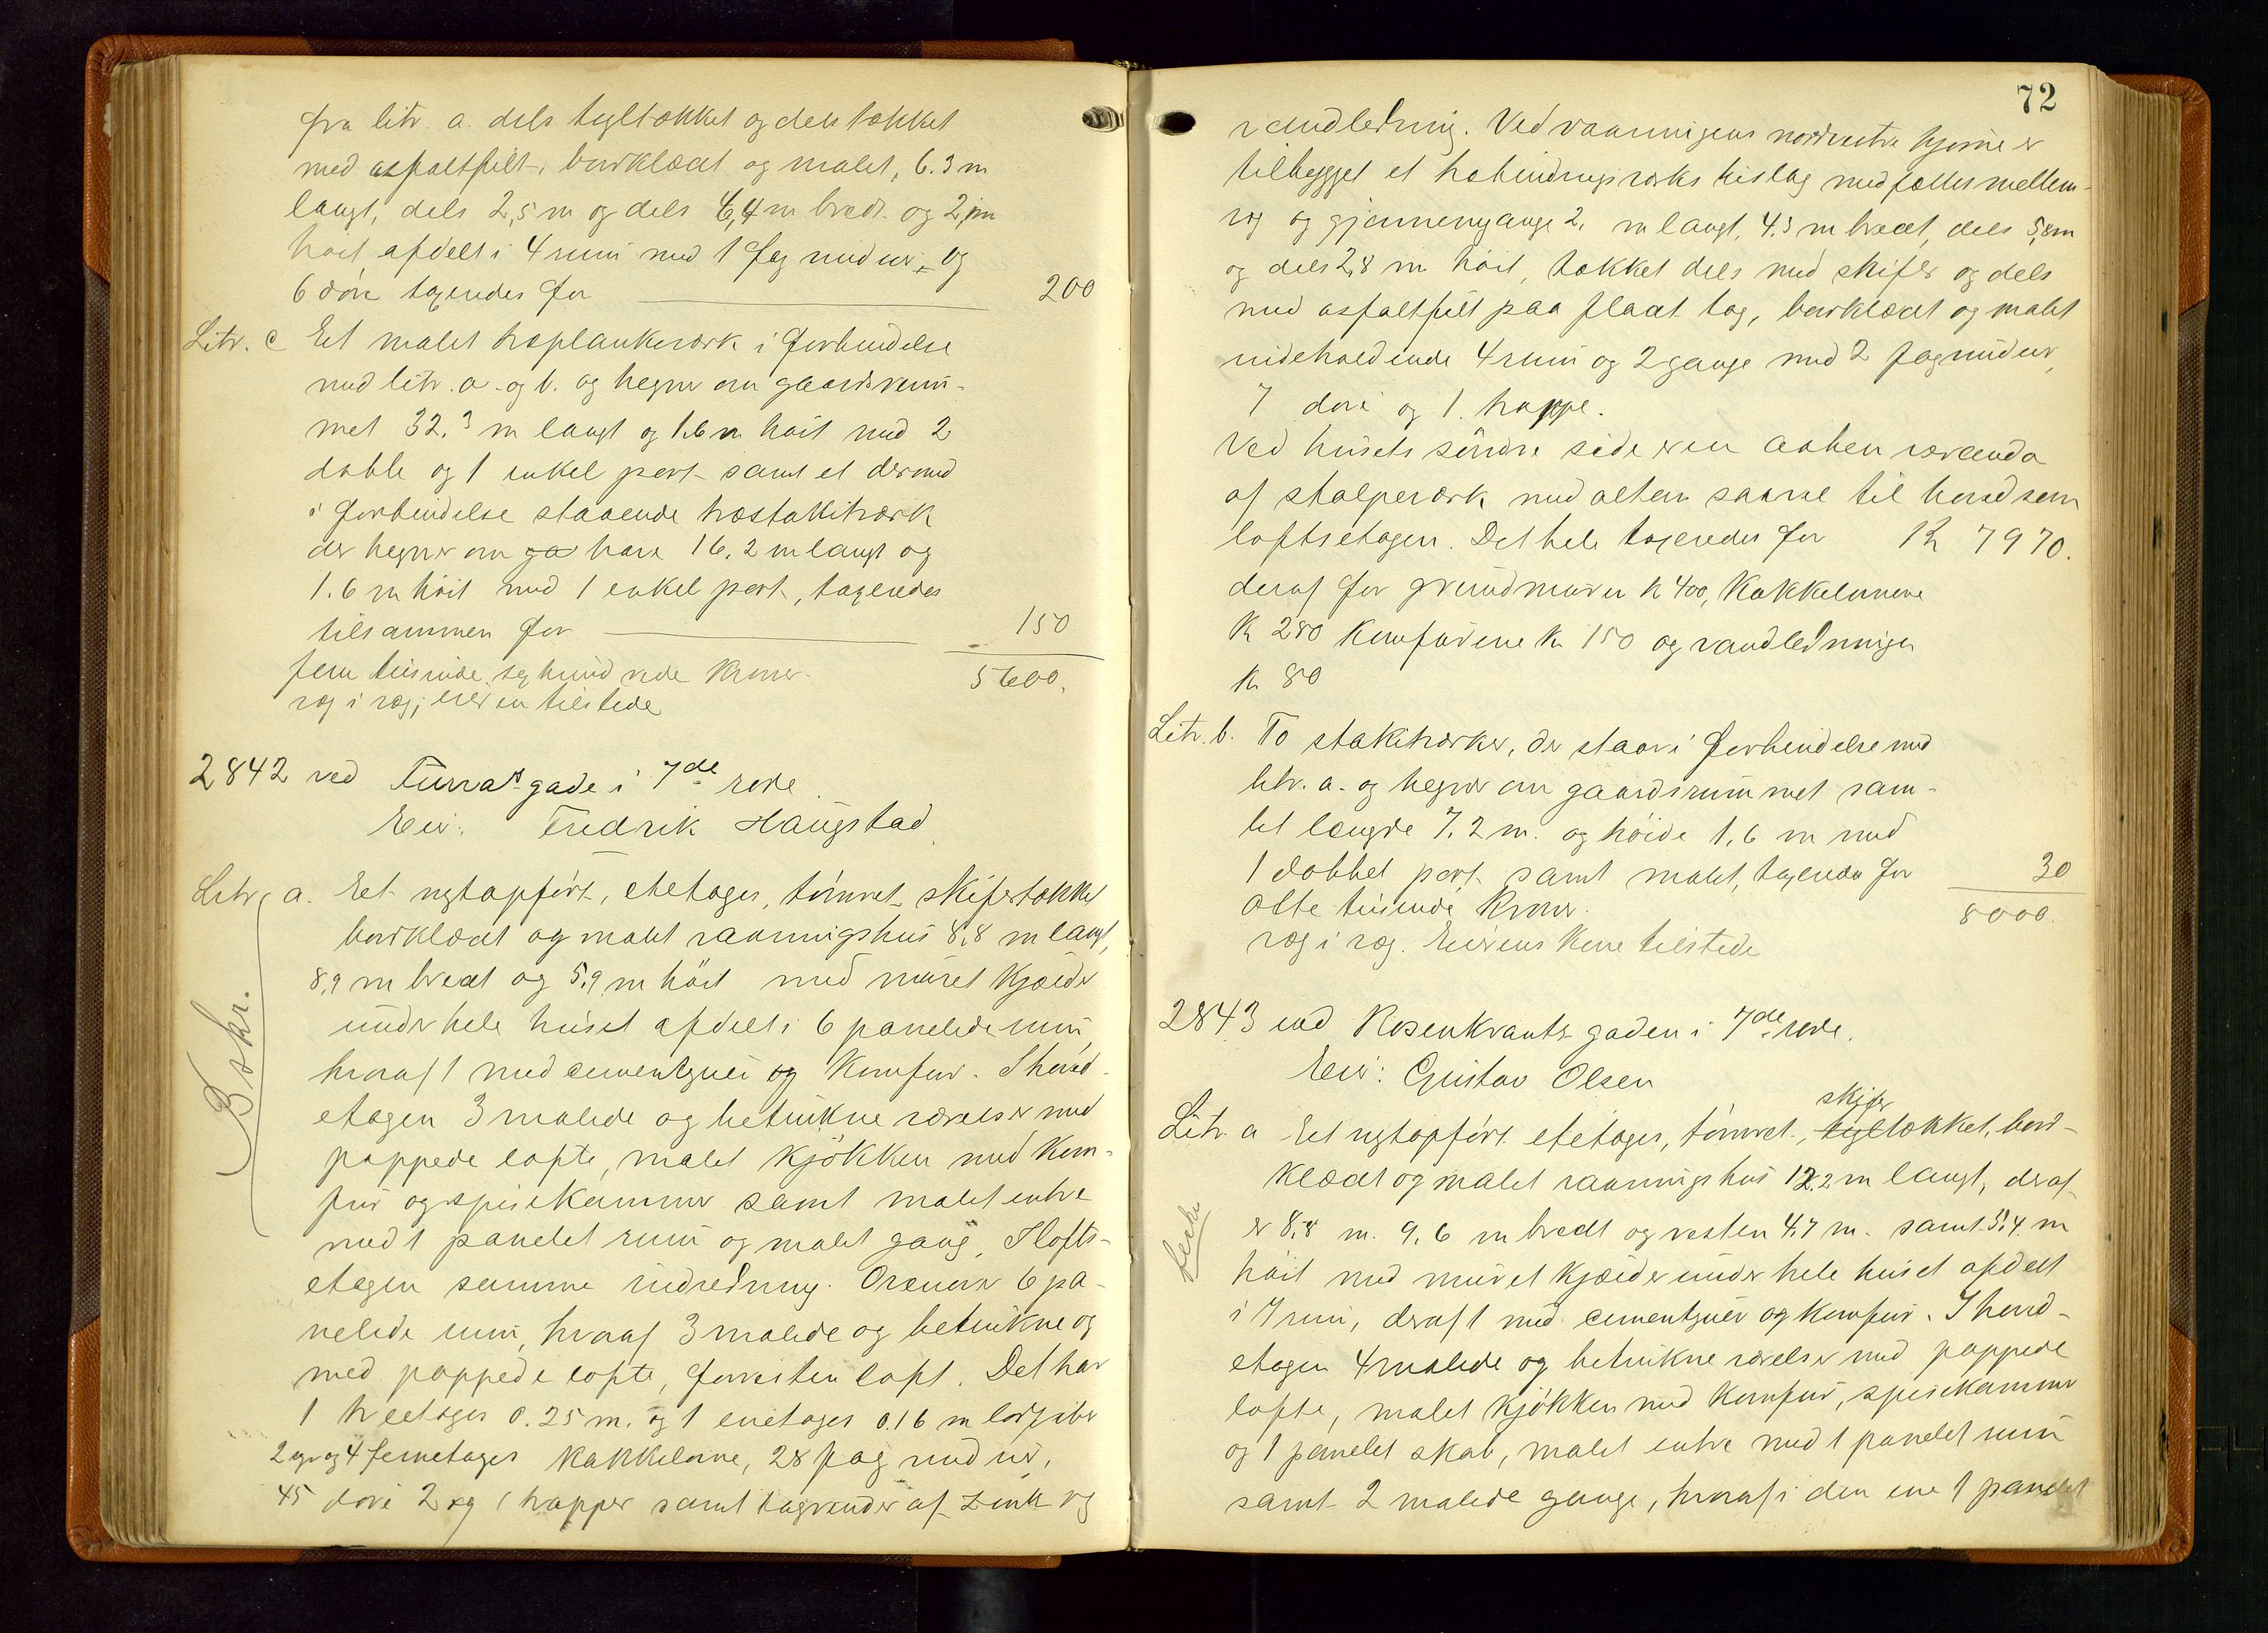 fra litr. a. dels tegltækket og dels tækket
med asfaltfilt, bordklædt og malet, 6.3 m
langt, dels 2,5 m og dels 4,4 m bredt og 2, m
høit afdelt i 4 rum med 1 fag vinduer og
6 døre taxeredes for 200
Litr. c Et malet træplankeværk i forbindelse
med litr. a. og b. og hegner om gaardsrum-
met 32.3 m langt og 1.6 m høit med 2
doble og 1 enkel port samt et dermed
i forbindelse staaende træstakitværk
der hegner om ga have 16.2 m langt og
1.6 m høit med 1 enkel port, taxeredes
tilsammen for 150
fem tusinde sex hundrede Kroner. 5600.
væg i væg; eieren tilstede
2842 ved Turras gade i 7de rode.
Eier: Fredrik Haugstad.
Litr. a. Et nyt opført, etetages, tømret skifertækket
bordklædt og malet vaaningshus 8,8 m langt,
8,9 m bredt og 5,9 m høit med muret kjælder
under hele huset afdelt i 6 panelede rum,
hvoraf 1 med cementgulv og komfur. I hoved-
etagen 3 malede og betrukne værelser med
pappede lofte, malet kjøkken med kom-
fur og spisekammer samt malet entre
med 1 panelet rum og malet gang. I lofts-
etagen samme indredning. Ovenover 6 pa-
nelede rum, hvoraf 3 malede og betrukne og
med pappede lofte, forresten loft. Det har
1 treetages 0.25 m. og 1 enetages 0.16 m
2 gr og 4 femetages kakkelovne, 28 fag vinduer,
45 døre 2 og 1 trapper samt tagrender af zink og
B skr.
72
vandledning. Ved vaaningens nordvestre hjørne er
tilbygget et træbindingsværks bislag med fælles mellem-
væg og gjennemgange 2. m langt, 4.3 m bredt, dels 5,8 m
og dels 2,8 m høit, tækket dels med skifer og dels
med asfaltfilt paa fladt tag, bordklædt og malet
indeholdende 4 rum og 2 gange med 2 fag vinduer,
7 døre og 1. trappe.
Ved husets søndre side er en aaben veranda
af stolpeværk med altan saavel til hoved som
loftsetagen. Det hele taxeredes for Kr 7970.
deraf for grundmuren K 400, Kakkelovnene
K 280 Komfurene K 150 og vandledningen
K 80
Litr. b. To stakitværker, der staar i forbindelse med
litr. a. og hegner om gaardsrummet sam-
let længde 7,2 m. og høide 1,6 m med
1 dobbel port samt malet, taxeredes for 30
otte tusinde Kroner. 8000.
væg i væg. Eierens Kone tilstede
2843 ved Rosenkrantz gaden i 7de rode.
Eier: Gustav Olsen
skifer
Litr. a Et nyt opført etetages, tømret, tegltækket, bord-
klædt og malet vaaningshus 12,2 m langt, deraf
er 8,8 m. 9,6 m bredt og resten 4,7 m. samt 5,4 m
høit med muret kjælder under hele huset afdelt
i 7 rum, deraf 1 med cementgulv og komfur. I hoved-
etagen 4 malede og betrukne værelser med pappede
lofte, malet kjøkken med komfur, spisekammer
og 1 panelet skab, malet entre med 1 panelet rum
samt 2 malede gange, hvoraf i den ene 1 panelet